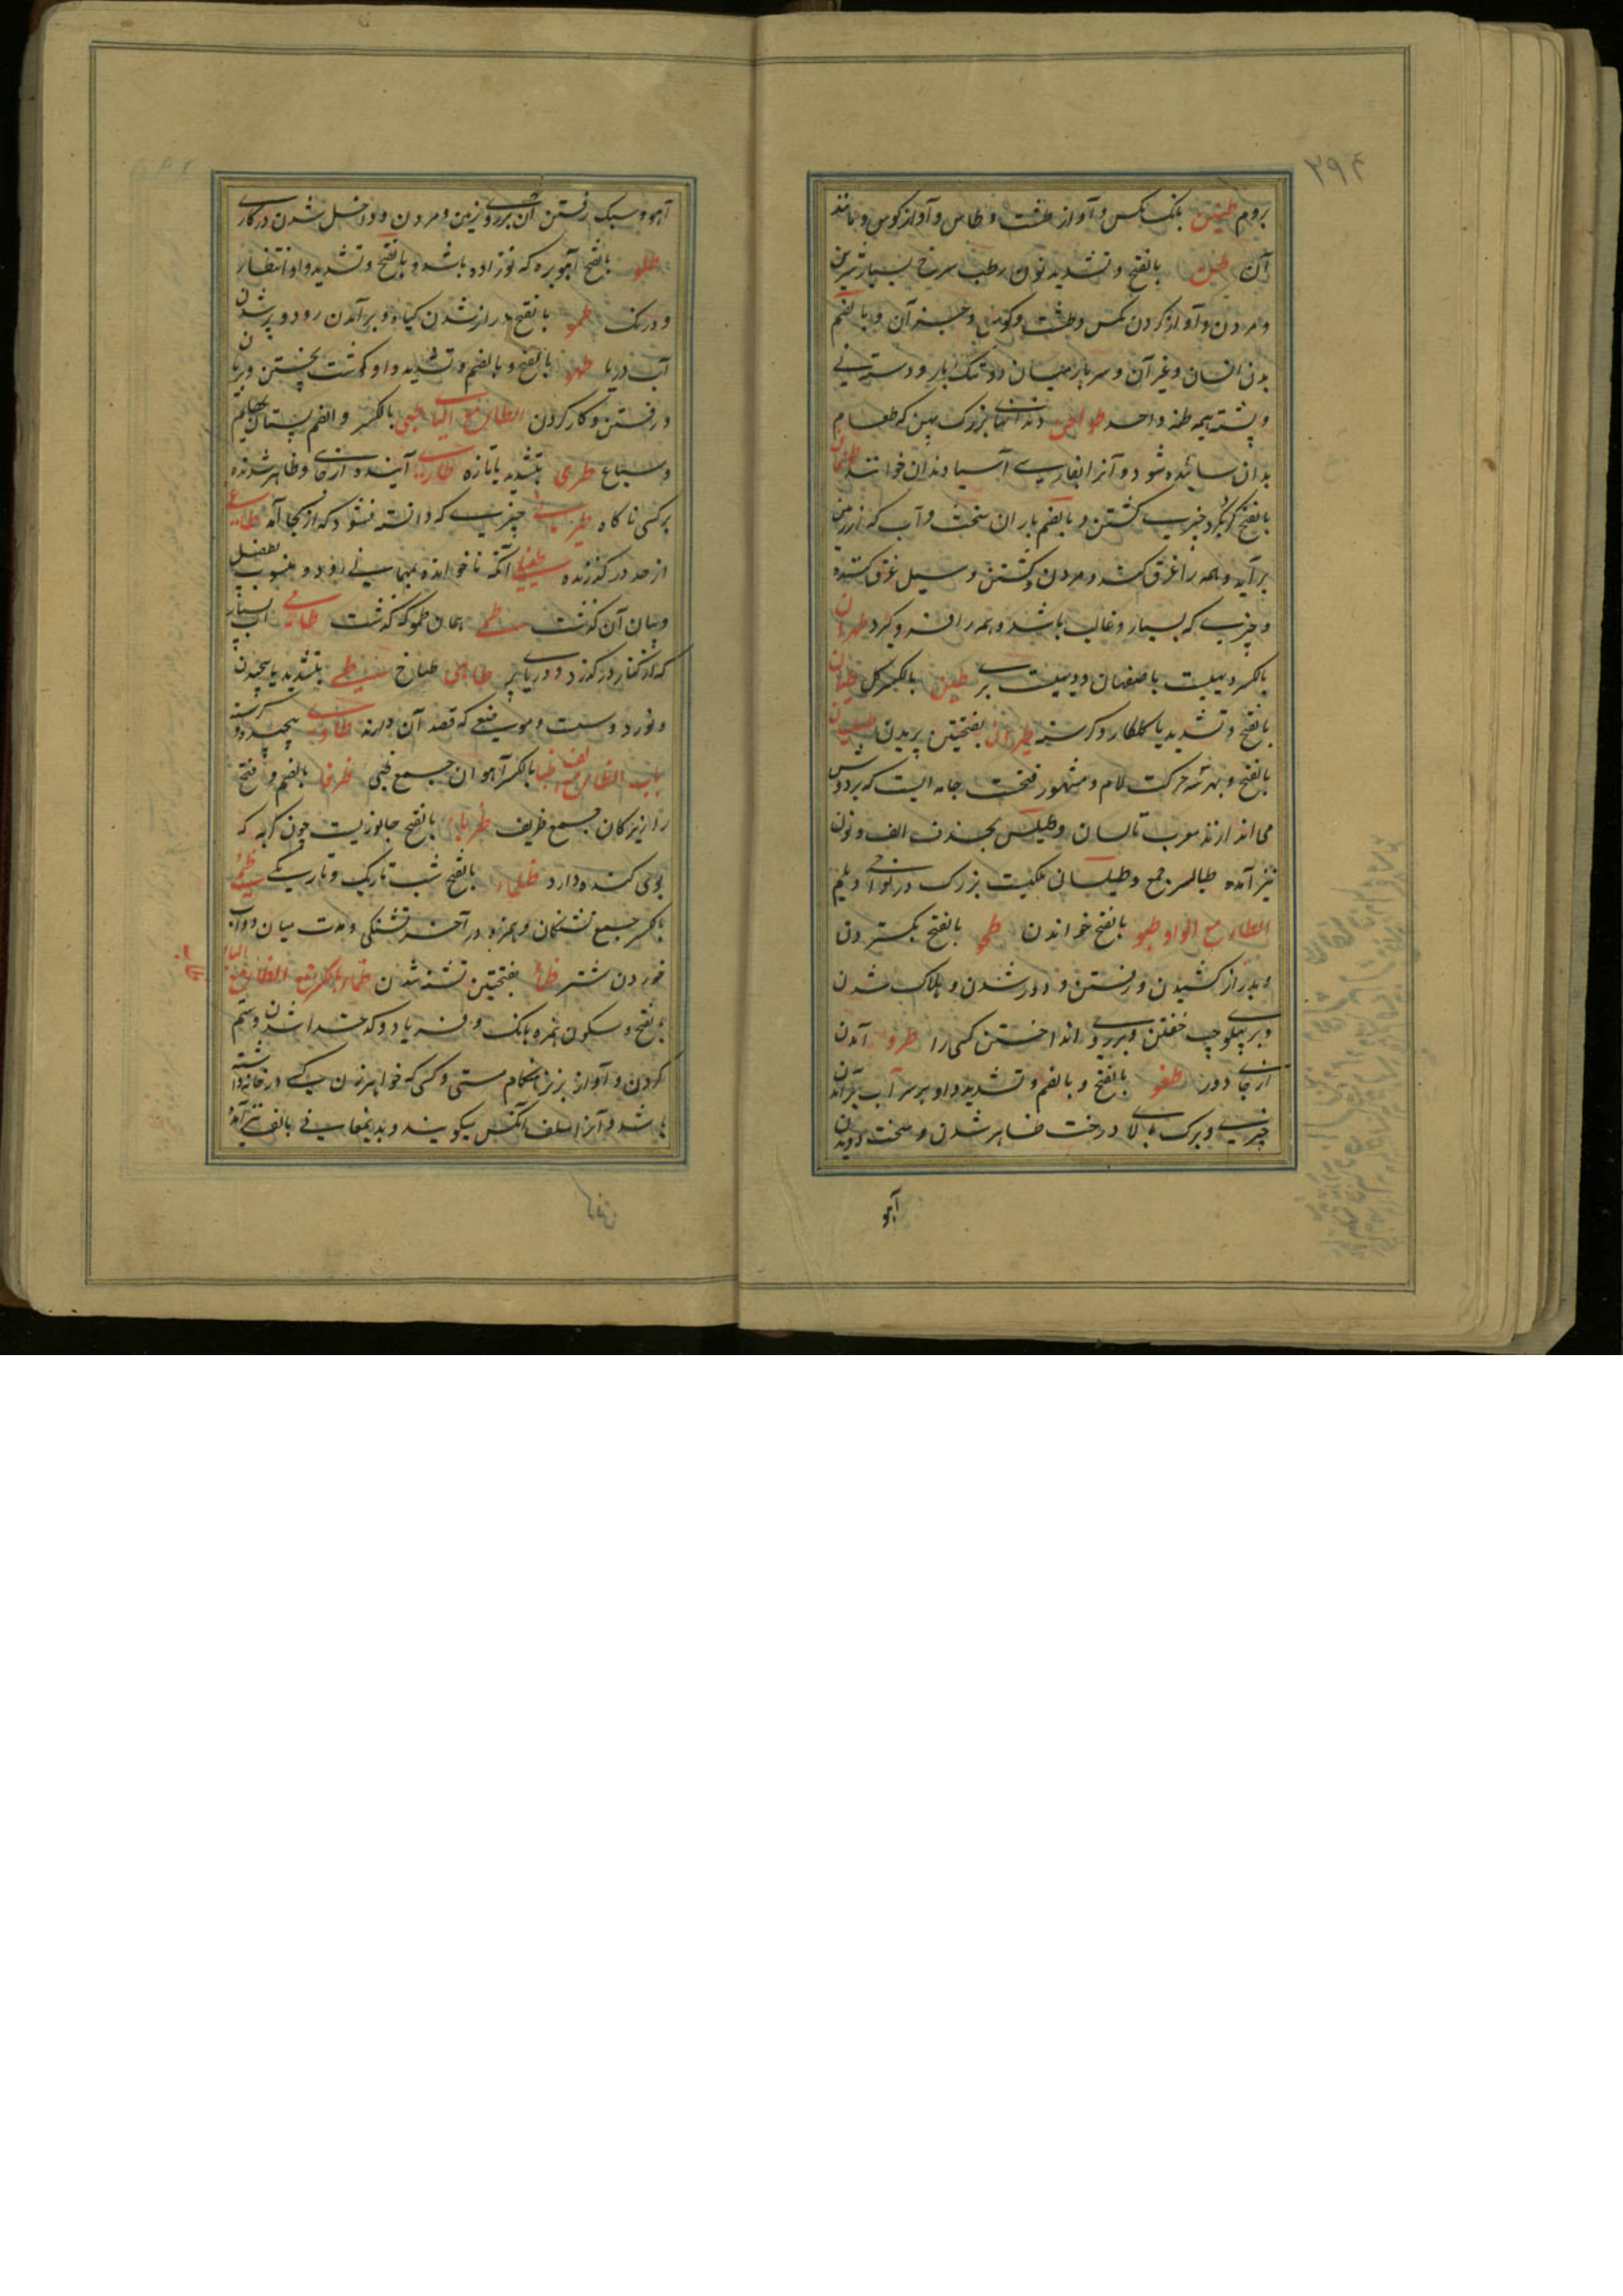 ۲۹۴
بروم طنین بانک مکس و آواز طشت و طاس و آواز کوس و مانند
آن طن بالفتح و تشدید نون رطب سرخ بسیار شیرین
و مردن و آواز کردن مکس و طشت و کوس و جز آن و بالضم
بدن انسان و غیر آن و سربار میان دو تنک بار و دسته نی
و پشته هیمه طنه واحد طواحن دندانهای بزرک پهن که طعام
بدان سائیده شود و آنرا بفارسی آسیا دندان خوانند طوفان
بالفتح کرد بکرد چیزی کشتن و بالضم باران سخت و آب که از زمین
برآید و همه را غرق کند و مردن و کشتن و سیل غرق کننده
و چیزی که بسیار و غالب باشد و همه را فرو کیرد طهران
بالکسر دیهیست باصفهان و دیهیست بری طین بالکسر کل طیان
بالفتح و تشدید یا کلکار و کرسنه طیران بفتحتین پریدن طیلسان
بالفتح و بهر سه حرکت لام و مشهور فتحت جامه ایست که بر دوش
می اندازند معرب تالسان و طیلس بحذف الف و نون
نیز آمده طیالسه جمع و طیلسان ملکیست بزرک در نواحی دیلم
الطاء مع الواو طبو بالفتح خواندن طحو بالفتح کستردن
و دراز کشیدن و رفتن و دور شدن و هلاک شدن
و بر پهلو چپ خفتن و بر روی انداختن کسی را طرو آمدن
از جای دور طفو بالفتح و بالضم و تشدید واو بر سر آب برآمدن
چیزی و برک بالا درخت ظاهر شدن و سخت دویدن
آهو
آهو و سبک رفتن آن بر روی زمین و مردن و داخل شدن در کاری
طلو بالفتح آهو بره که نوزاده باشد و بالفتح و تشدید واو انتظار
و درنک طمو بالفتح دراز شدن کیاه و برآمدن رود و پر شدن
آب دریا طهو بالفتح و بالضم و تشدید واو کوشت پختن و بریان
و رفتن و کار کردن الطاء مع الیاء طبی بالکسر و الضم پستان بهایم
و سباع طری بتشدید یا تازه طاری آینده از جای و ظاهر شونده
بر کسی ناکاه چیزی که دانسته نشود که از کجا آمد طاغی
از حد در کذرنده طفیلی آنکه ناخوانده بمهمانی رود و منسوب بطفیل
و بیان آن کذشت طمی همان طمو که کذشت طامی آب بسیار
که از کنار در کذرد و دریا پر طاهی طباخ طی بتشدید یا پیچیدن
و نورد و موضعی که قصد آن دارند طاوی پیچیده و کرسنه
باب الظاء مع الالف ظبا بالکسر آهوان جمع ظبی ظرفا بالضم و فتح
را زیرکان جمع ظریف ظرباء بالفتح جانوریست چون کربه که
بوی کنده دارد ظلماء بالفتح شب تاریک و تاریکی ظما
بالکسر جمع تشنکان و بهمزه در آخر تشنکی و مدت میان دو آب
خوردن شتر ظمأ بفتحتین تشنه شدن ظماء بالکسر جمع الظاء مع الباء
بالفتح و سکون همزه بانک و فریاد و کدخدا شدن و ستم
کردن و آواز بز نر هنکام مستی و کسی که خواهر زن یکی در خانه داشته
باشد و آنرا سلف آنکس میکویند و بدینمعانی بالف نیز آمده